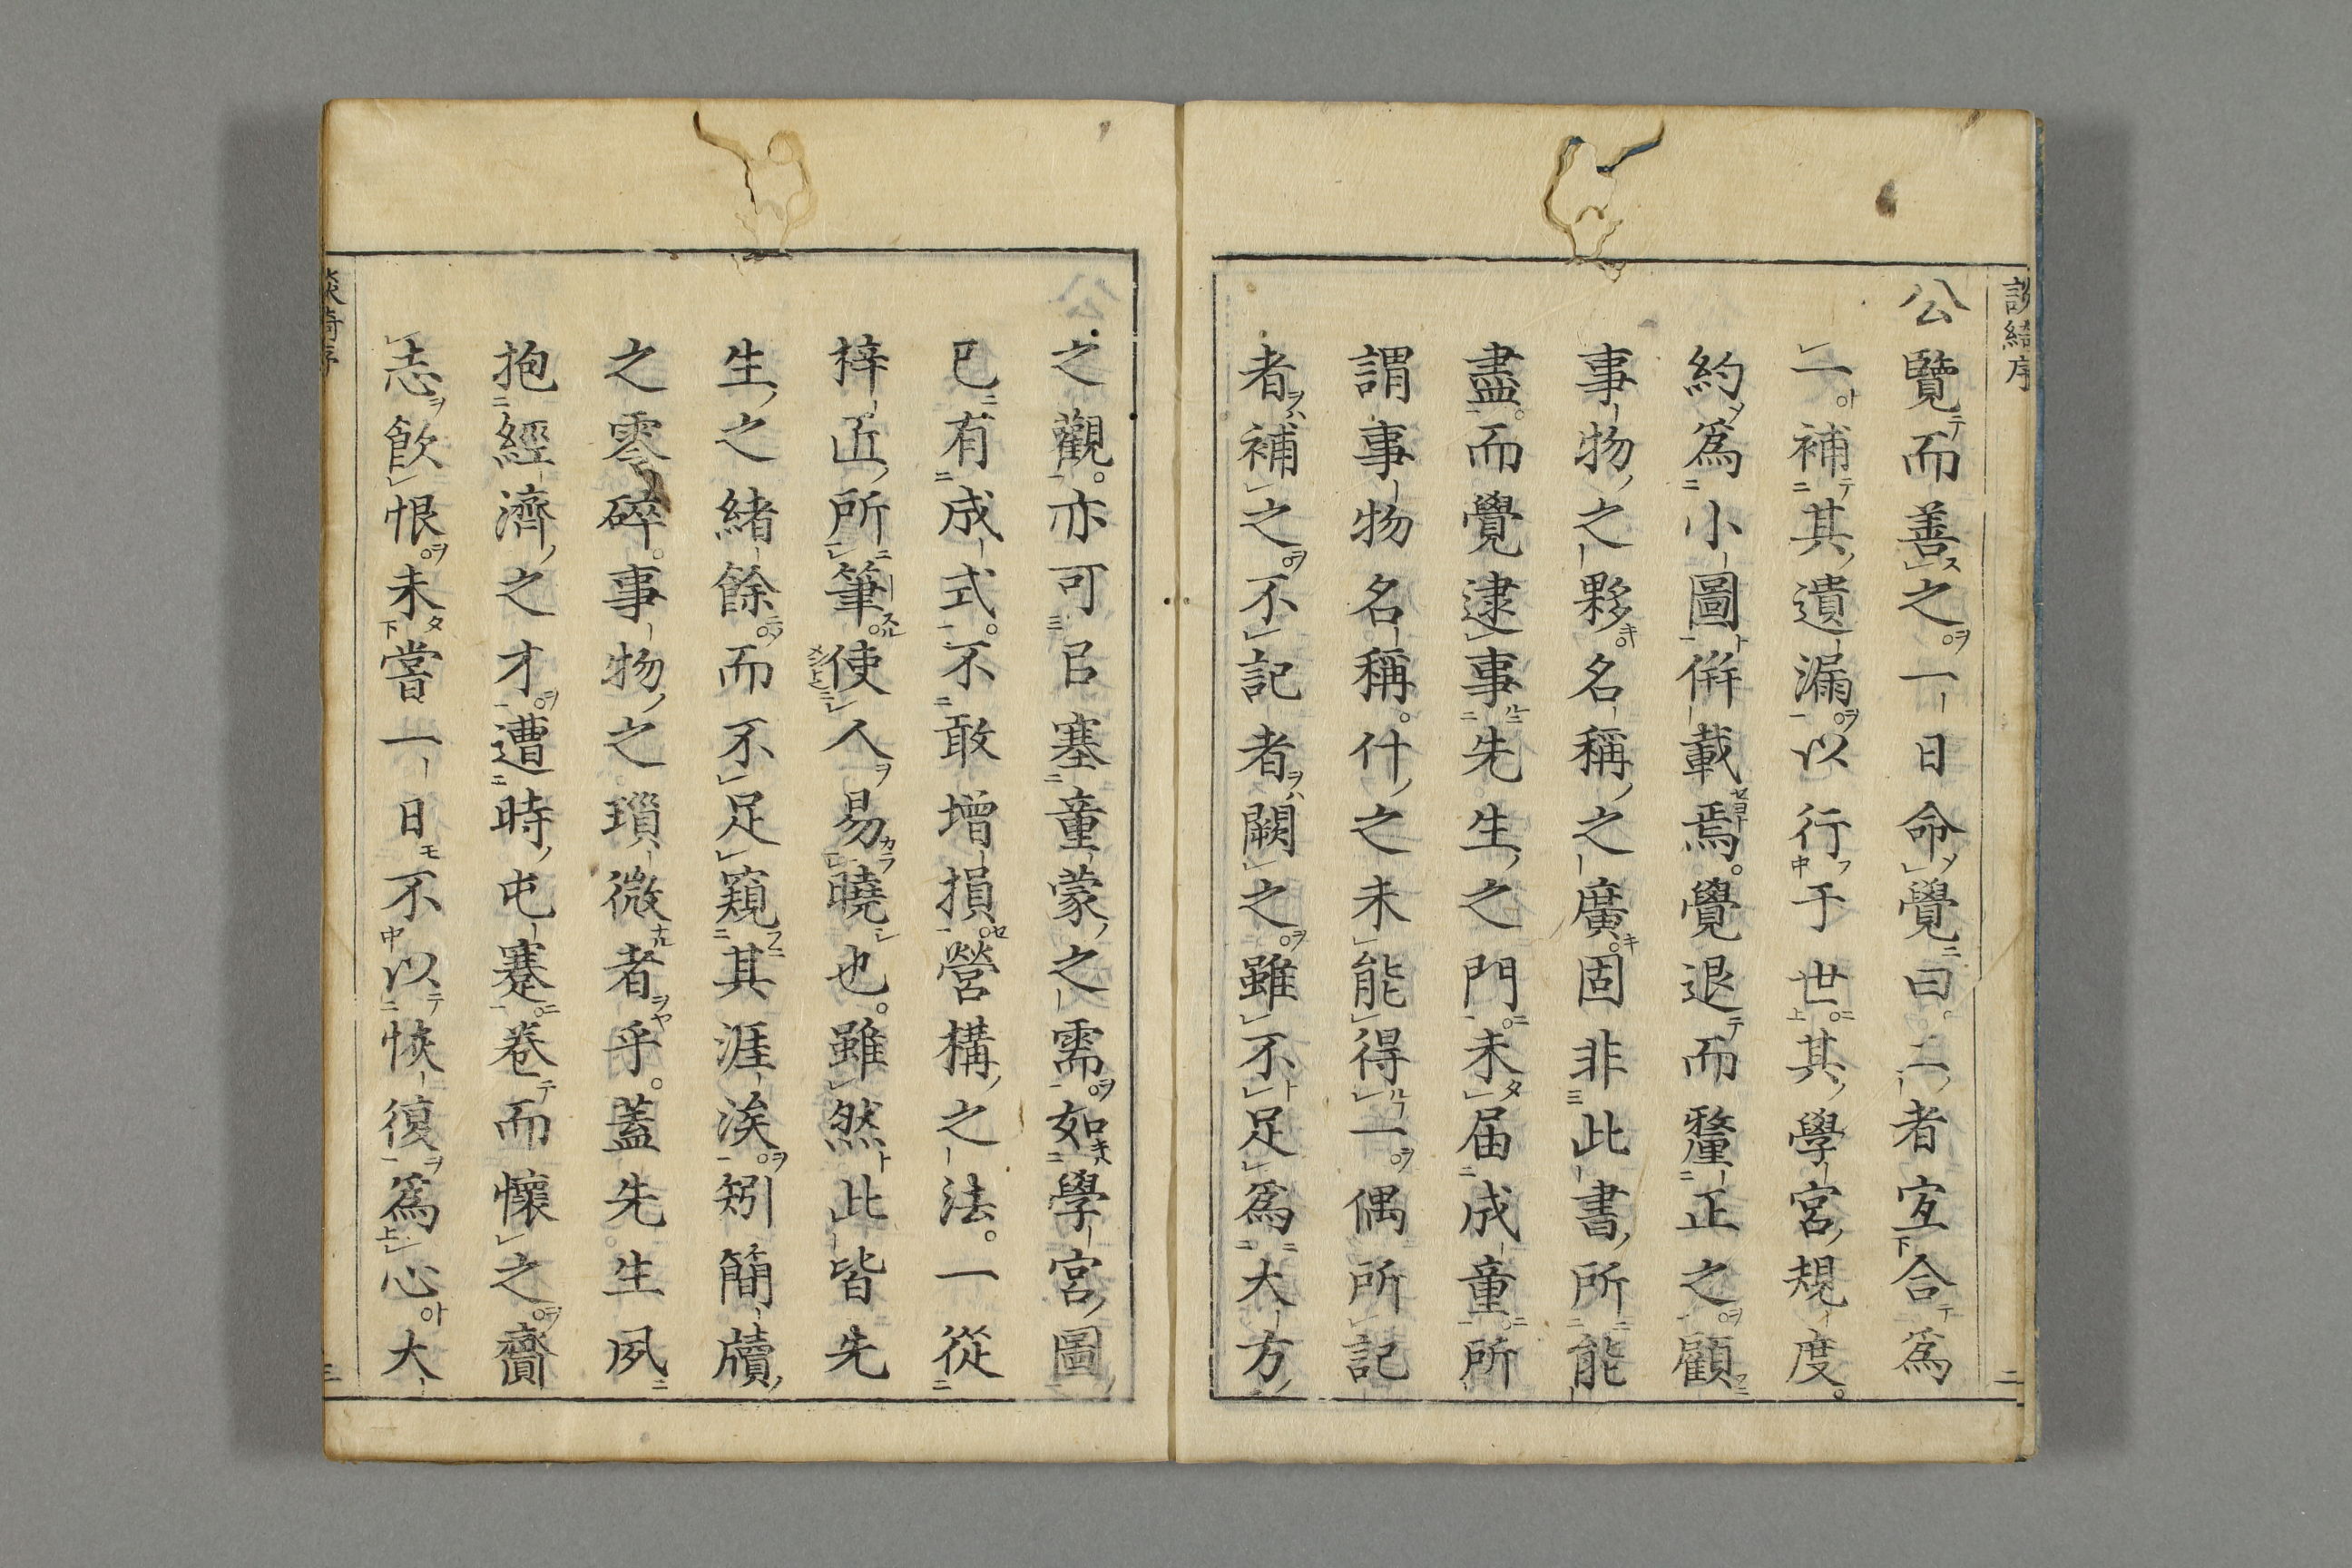 談綺序
公覽而善之一日命覺曰二者宐合爲
一補其遺漏以行于世其學宮規度
約爲小圖倂載焉覺退而釐正之顧
事物之夥名稱之廣固非此書所能
盡而覺逮事先生之門未届成童所
謂事物名稱什之未能得一偶所記
者補之不記者闕之雖不足爲大方
二
之觀亦可㠯塞童蒙之需如學宮圖
已有成式不敢增損營構之法一從
梓匠所筆使人易曉也雖然此皆先
生之緒餘而不足窺其涯涘矧簡牘
之零碎事物之瑣微者乎蓋先生夙
抱經濟之才遭時屯蹇卷而懷之齎
志飮恨未嘗一日不以恢復爲心大